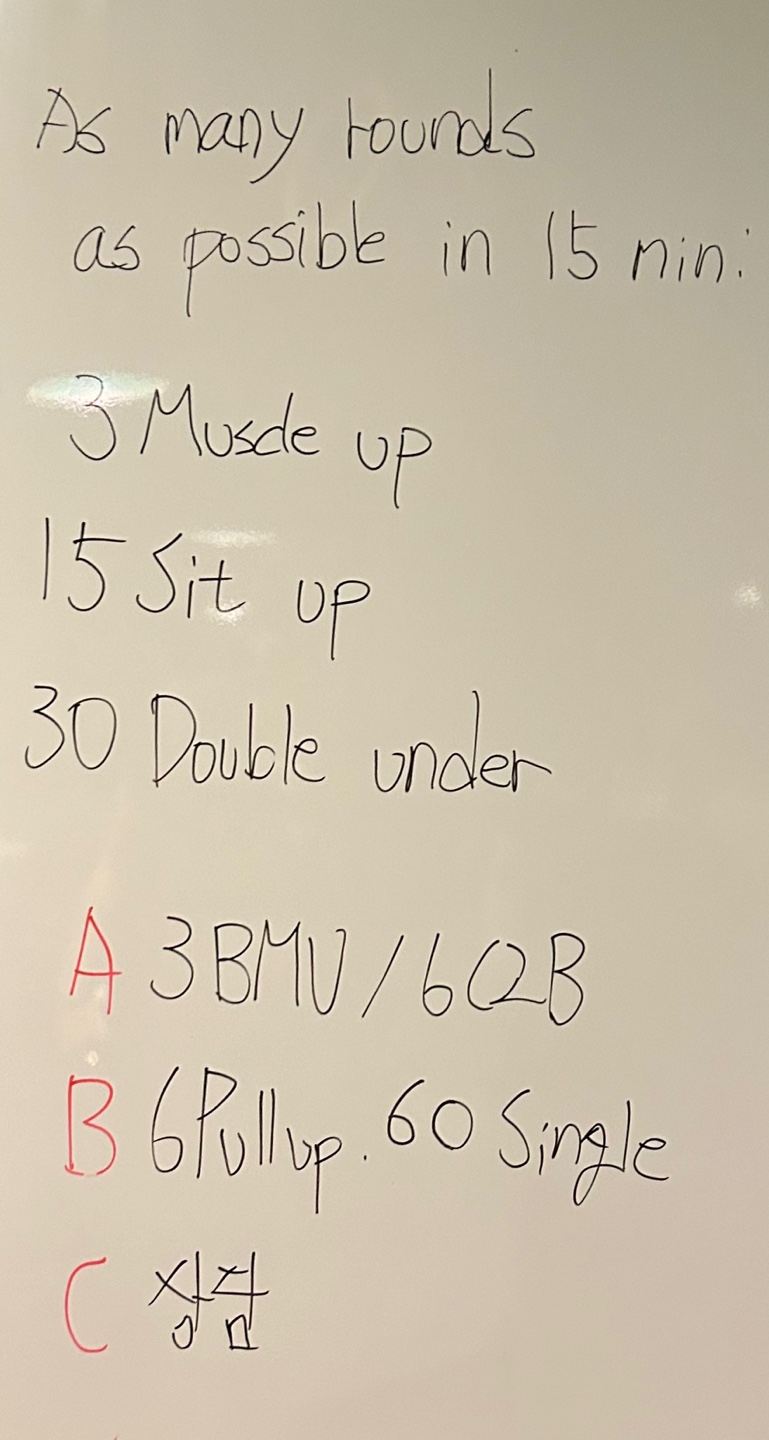 As many rounds
as possible in 15 min:
3 Muscle up
15 Sit up
30 Double under
A 3 BMU / 6 C2B
B 6 Pull up. 60 Single
C 상담